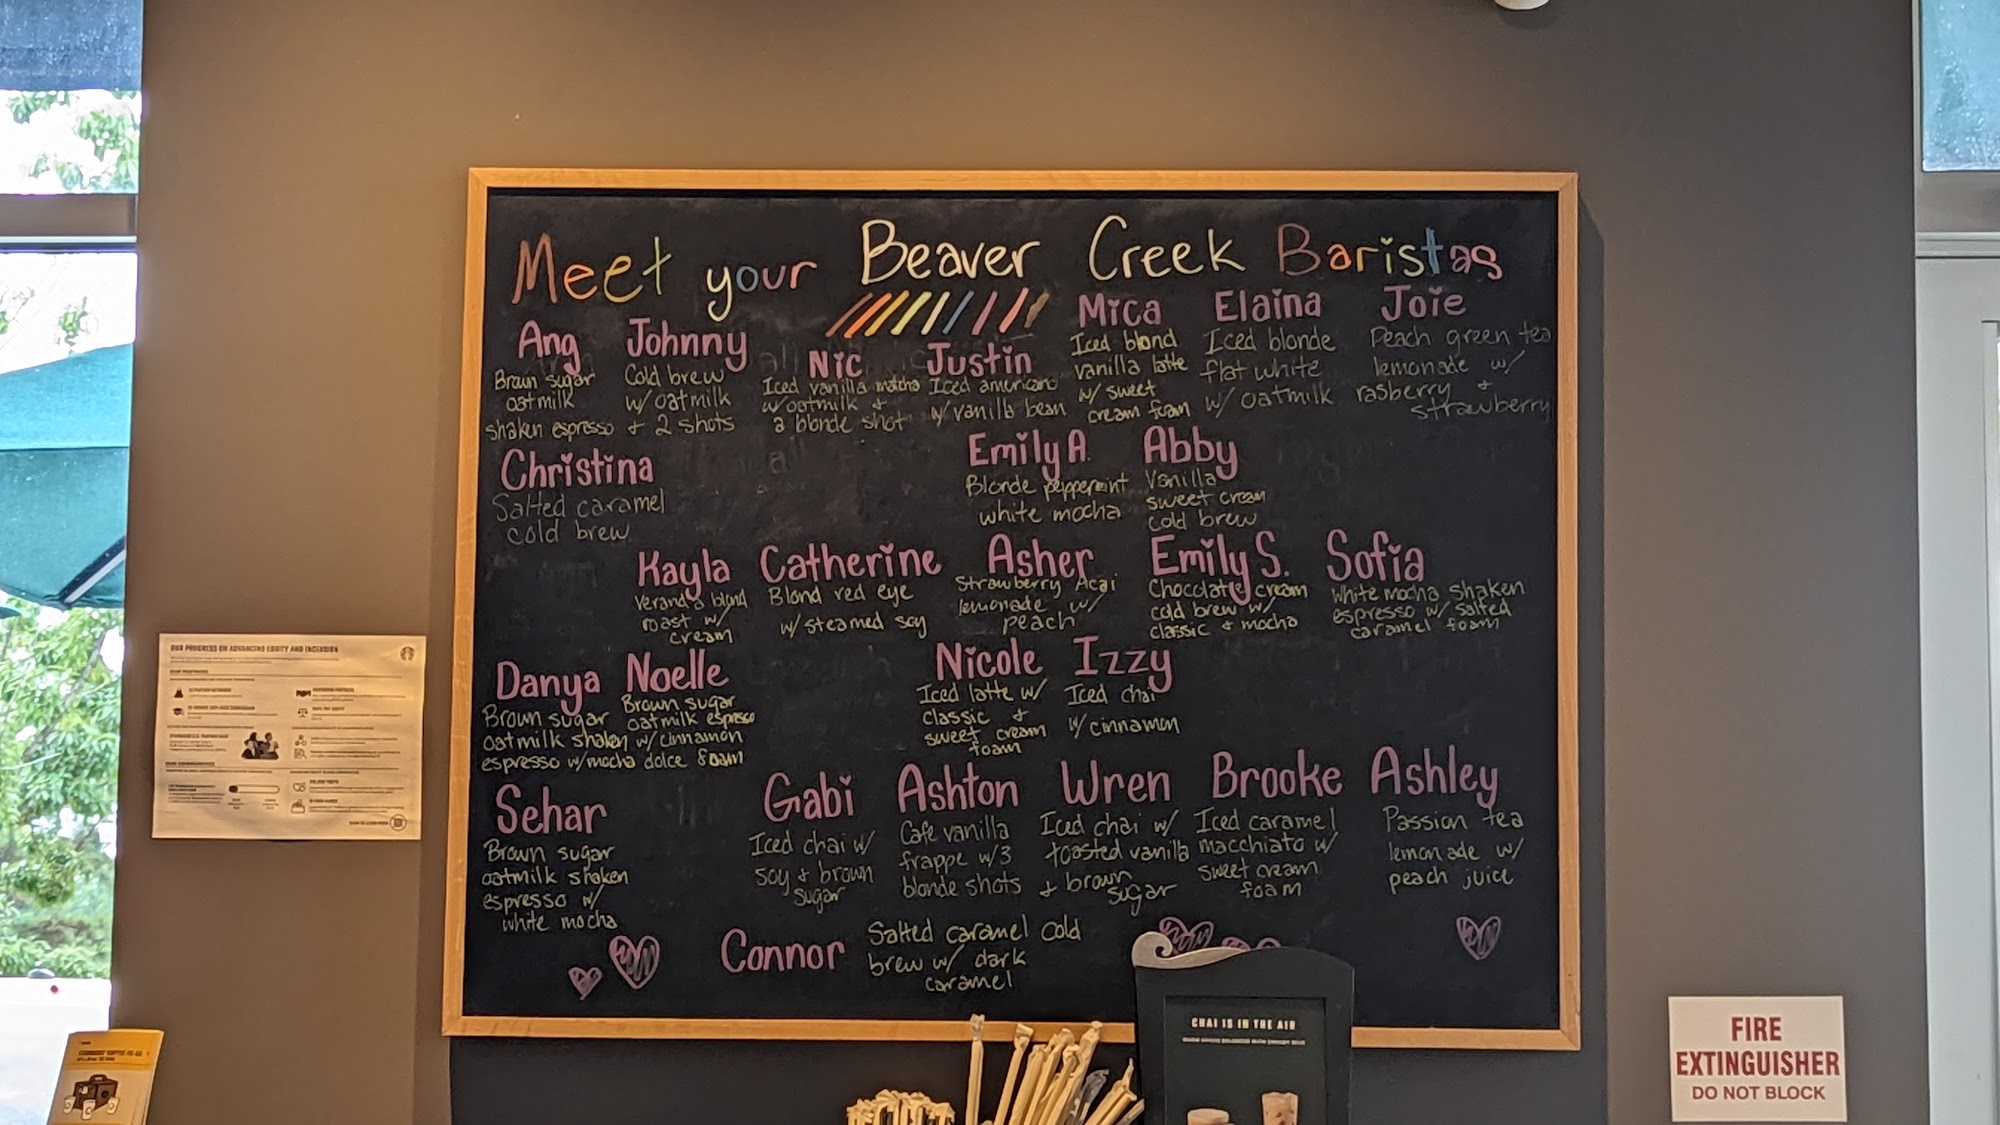 Meet your Beaver Creek Baristas
Ang
Brown sugar
oatmilk
shaken espresso
Johnny
Cold brew
w/ oatmilk
+ 2 shots
Nic
Iced vanilla matcha
w/oatmilk +
a blonde shot
Justin
Iced americano
w/ vanilla bean
Mica
Iced blond
vanilla latte
w/ sweet
cream foam
Elaina
Iced blonde
flat white
w/ oatmilk
Joie
Peach green tea
lemonade w/
rasberry +
strawberry
Christina
Salted caramel
cold brew
Emily A.
Blonde peppermint
white mocha
Abby
Vanilla
sweet cream
cold brew
Kayla
Verand
blond
roast w/
cream
Catherine
Blond red eye
w/ steamed soy
Asher
Strawberry Acai
lemonade w/
peach
Emily S.
Chocolatey cream
cold brew w/
classic + mocha
Sofia
White mocha shaken
espresso w/ salted
caramel foam
Danya
Brown sugar
oatmilk shaken
espresso w/mocha
Noelle
Brown sugar
oatmilk espresso
w/ cinnamon
dolce foam
Nicole
Iced latte w/
classic +
sweet cream
foam
Izzy
Iced chai
w/ cinnamon
Sehar
Brown sugar
oatmilk shaken
espresso w/
white mocha
Gabi
Iced chai w/
soy + brown
sugar
Ashton
Cafe vanilla
frappe w/3
blonde shots
Wren
Iced chai w/
toasted vanilla
+ brown
sugar
Brooke
Iced caramel
macchiato w/
sweet cream
foam
Ashley
Passion tea
lemonade w/
peach juice
Connor
Salted caramel cold
brew w/ dark
caramel
OUR PROGRESS ON ADVANCING EQUITY AND INCLUSION
CHAI IS IN THE AIR
FIRE
EXTINGUISHER
DO NOT BLOCK